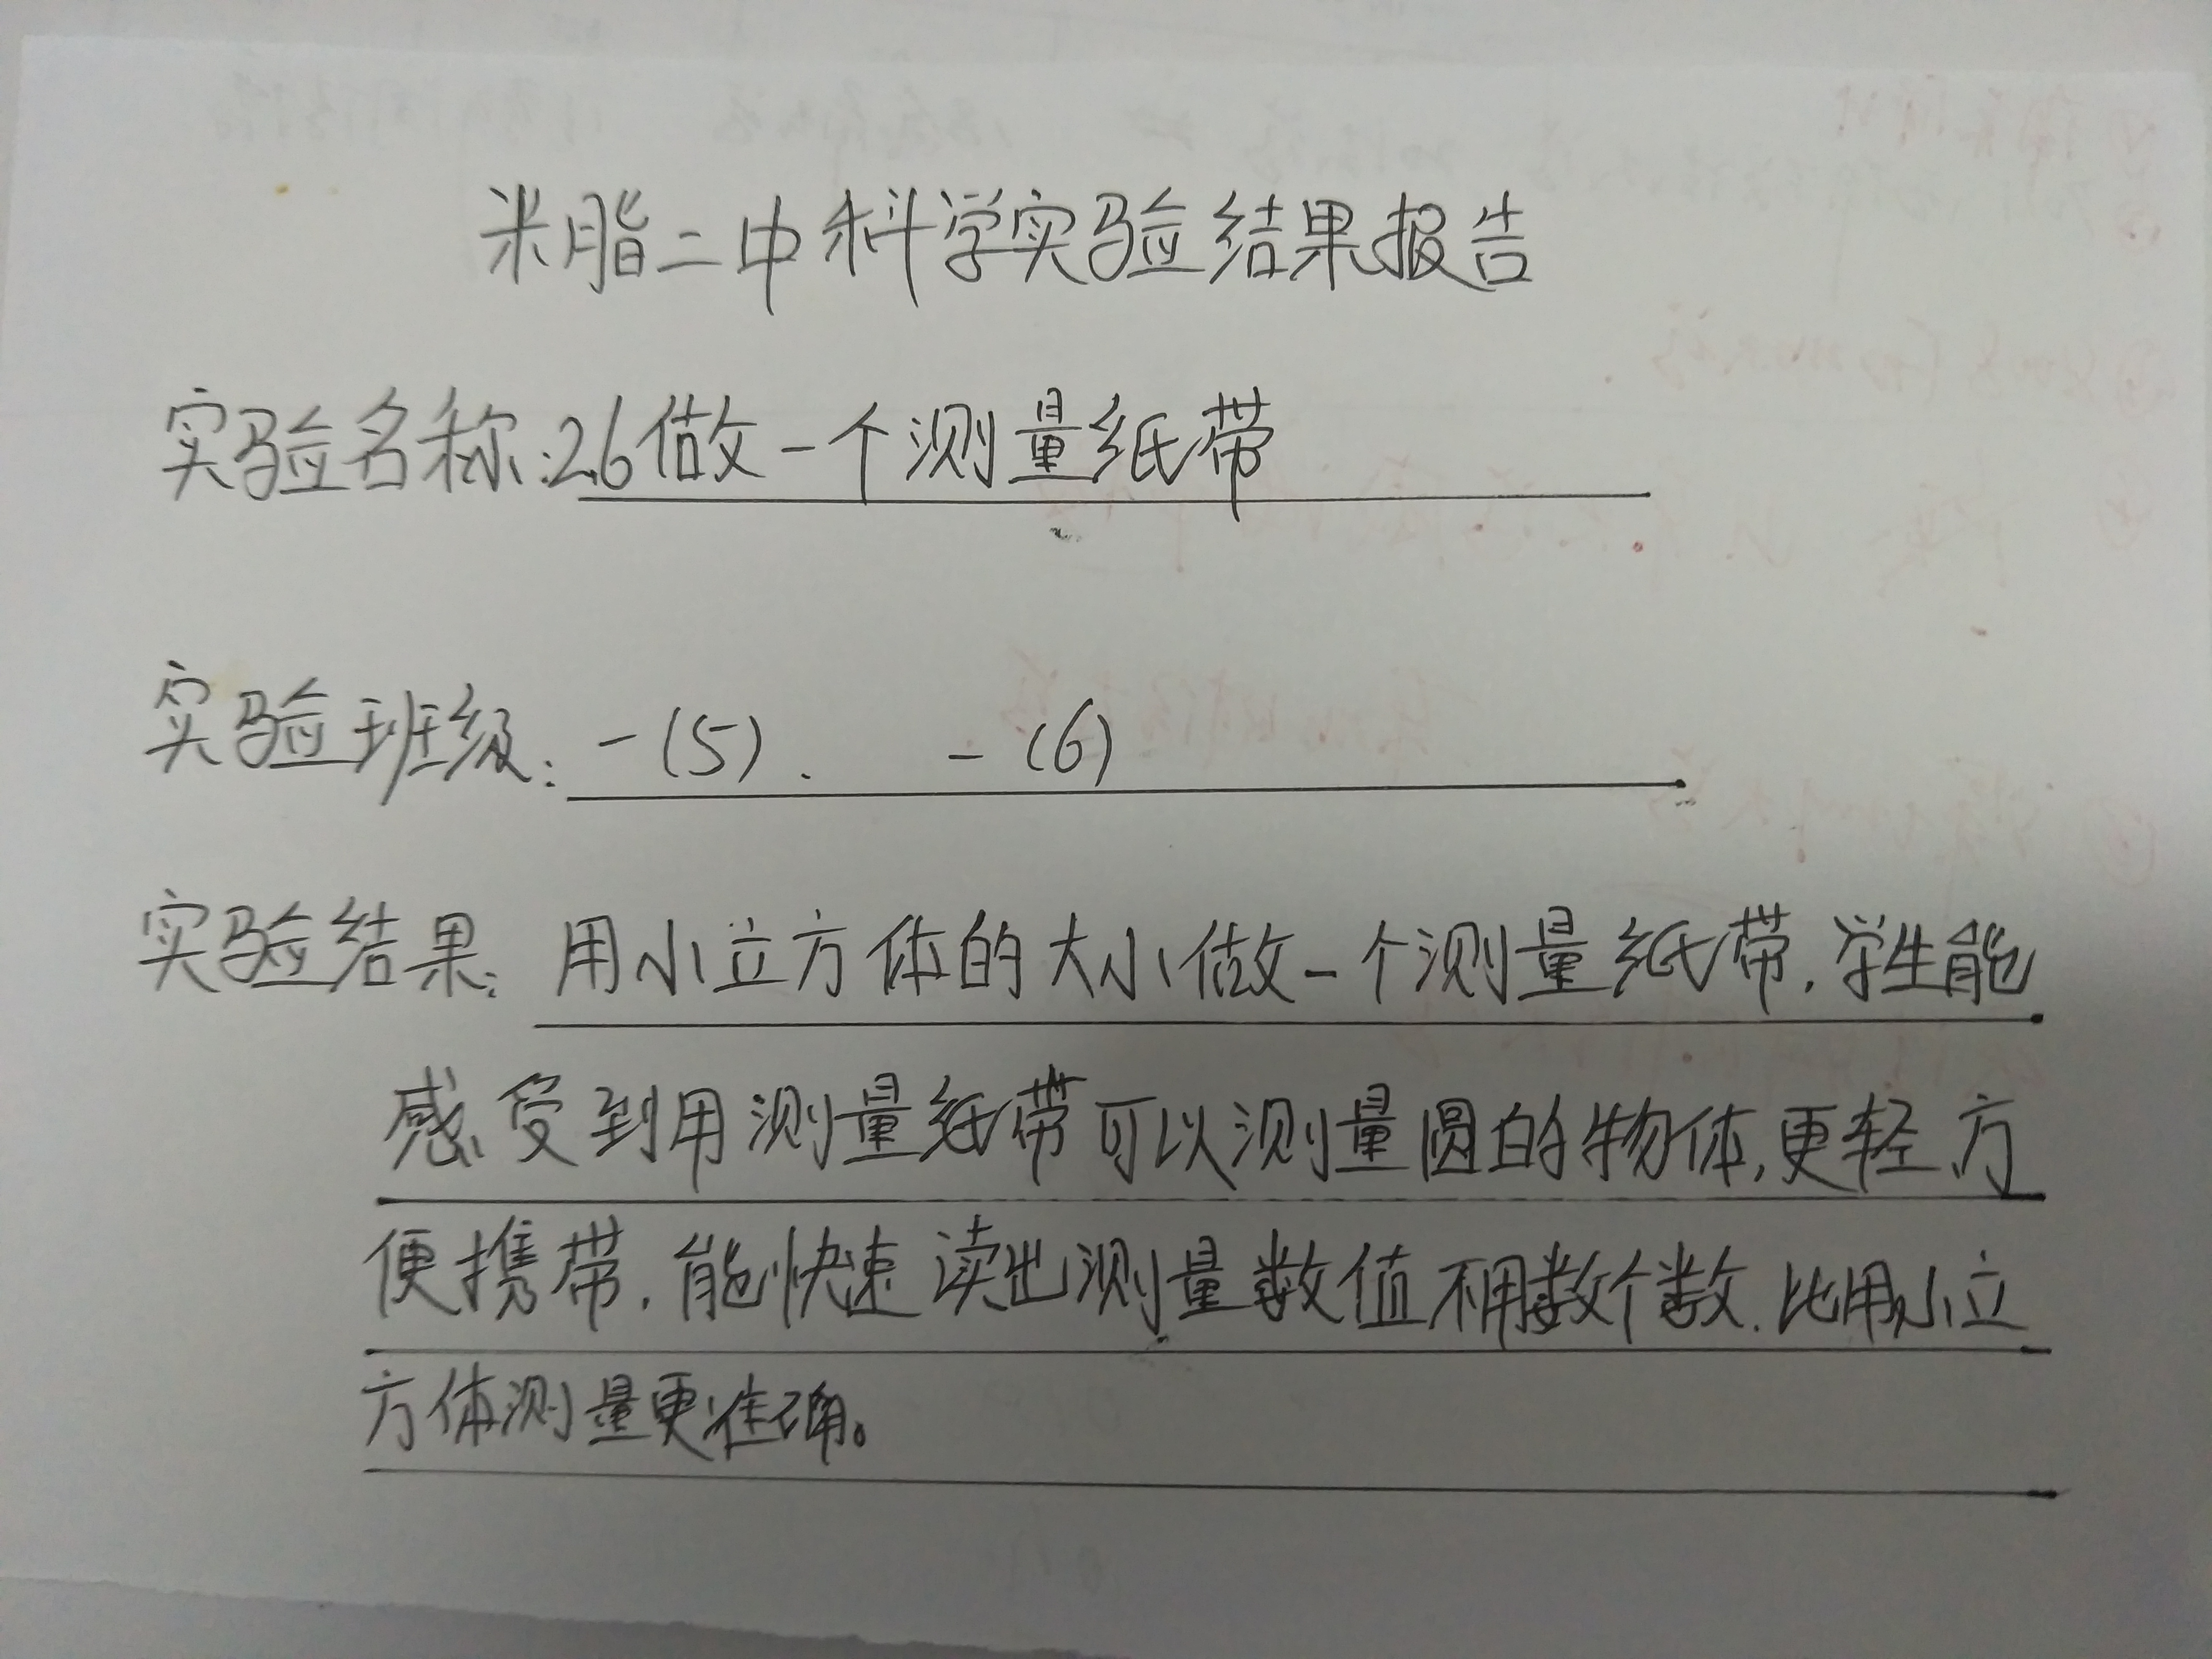 米脂二中科学实验结果报告
实验名称:2.6做一个测量纸带
实验班级:一(5).  一(6)
实验结果:用小立方体的大小做一个测量纸带,学生能
感受到用测量纸带可以测量圆的物体,更轻方
便携带,能快速读出测量数值不用数个数.比用小立
方体测量更准确。